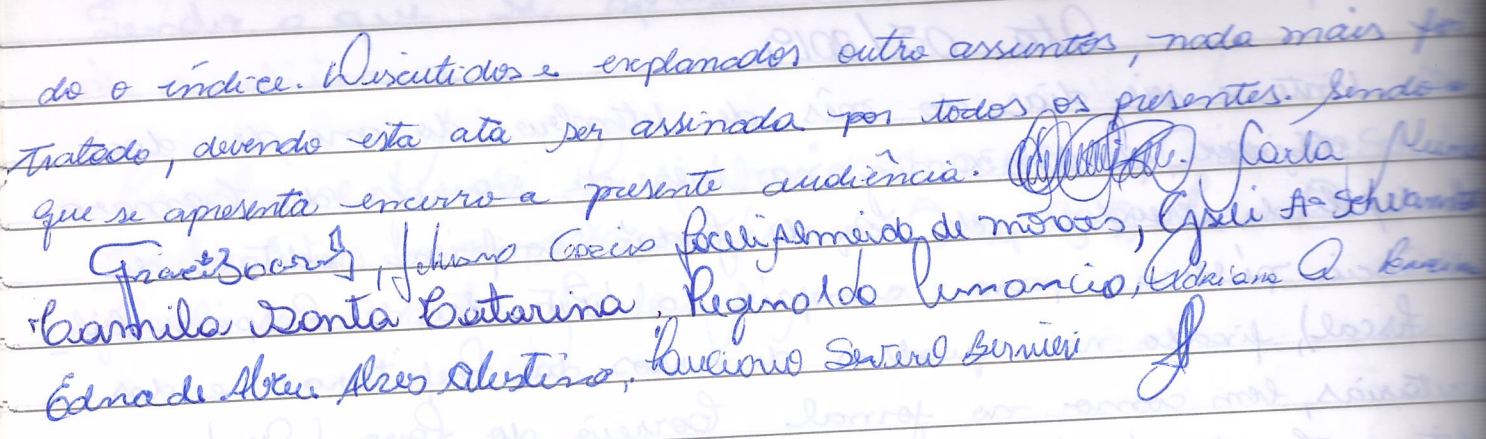 do o índice. Discutidos e explanados outro assuntos, nada mais fo
tratado, devendo esta ata ser assinada por todos os presentes. Sendo o
que se apresenta encerro a presente audiência. Carla
Soares, Juliano Joceli Almeida de moraes, Gseli Ap
Camila Santa Catarina, Reginaldo Amancio, Adriana
Edna de Abreu Alves Celestino, Luciano Severo Bernieri